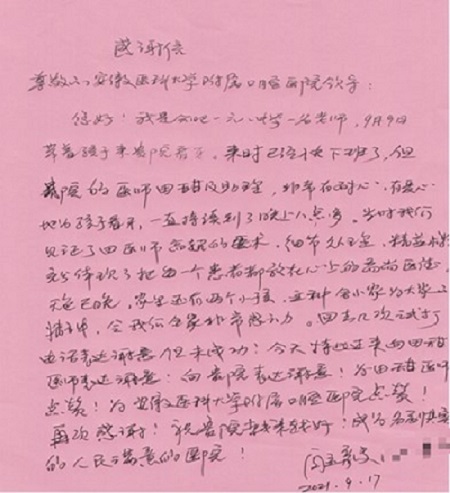 感谢信
尊敬的安徽医科大学附属口腔医院领导:
您好!我是合肥一元一幼一名老师,9月9日
带着孩子来贵院看牙。来时已经快下班了,但
贵院的医师田甜及助理,非常有耐心、有爱心
地为孩子看牙,一直持续到了晚上八点多。当时我们
见证了田医师高超的医术,细节处理,精益求精
充分体现了把每一个患者都放在心上的高尚医德,
天色已晚,家里还有两个小孩,这种舍小家为大家
精神,令我们全家非常感动。回去几次试打
电话表达谢意但未成功!今天特地过来向田甜
医师表达谢意!向贵院表达谢意!为田甜医师
点赞!为安徽医科大学附属口腔医院点赞!
再次感谢!祝贵院越来越好!成为名副其实
的人民满意的医院!
2021.9.17